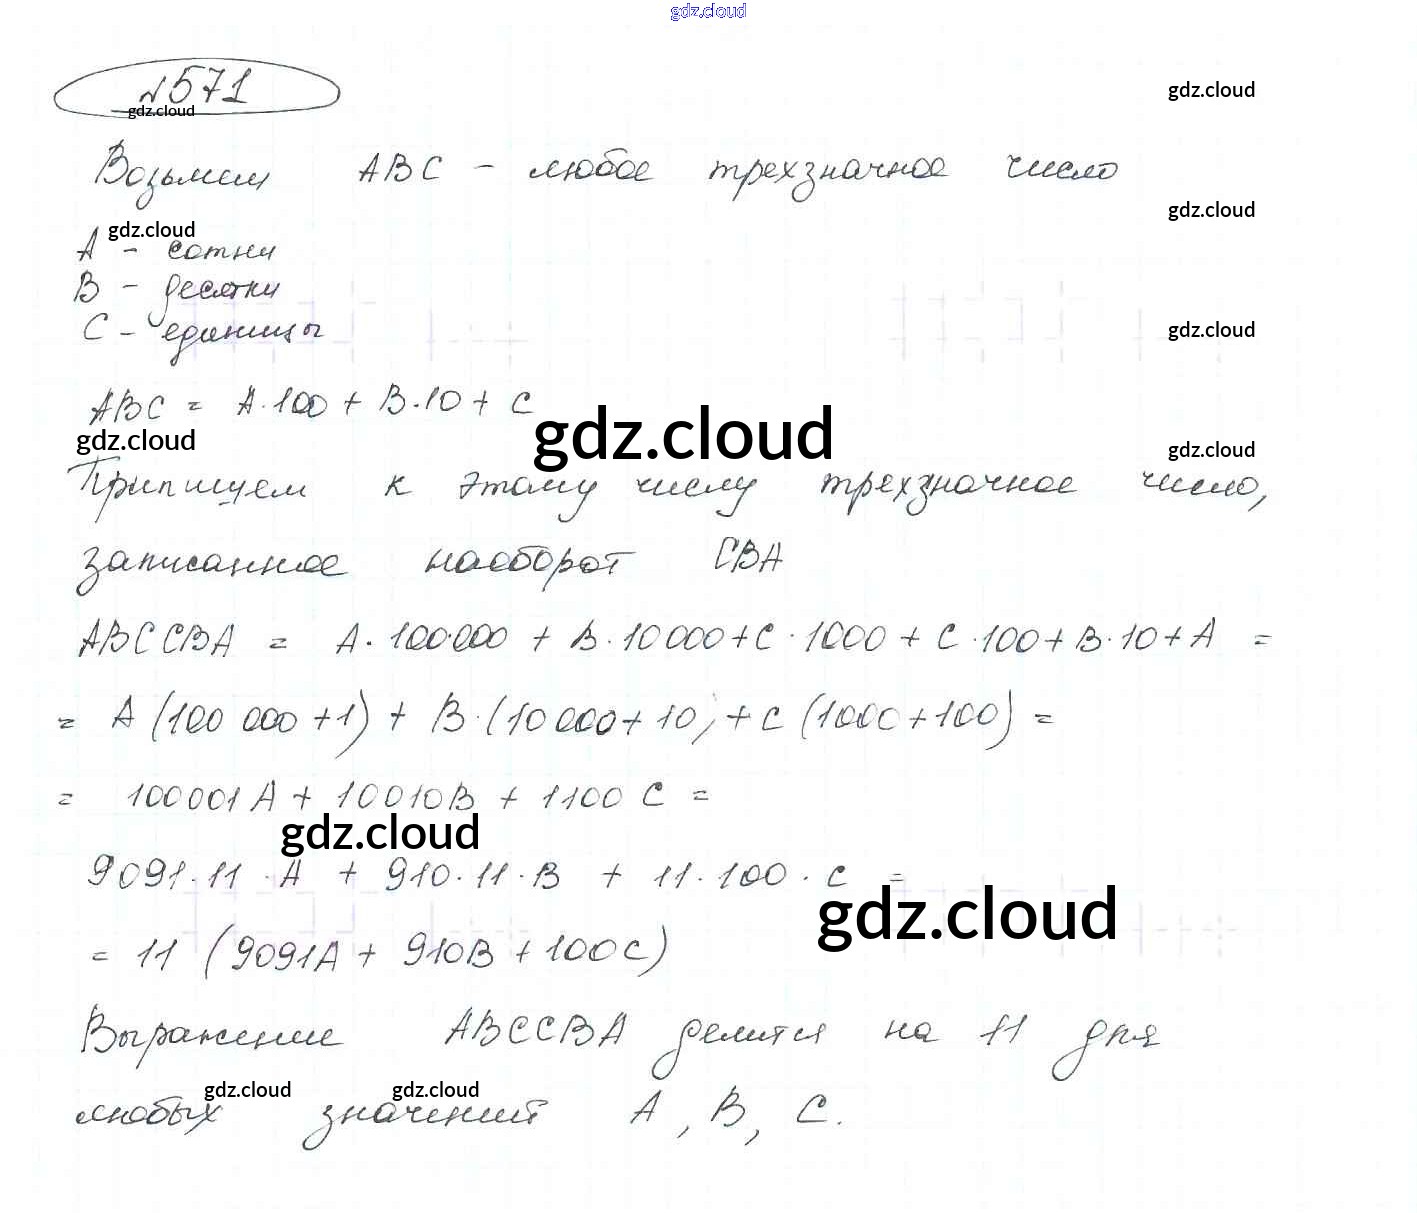 gdz.cloud
№571
gdz.cloud
gdz.cloud
Возьмем ABC - любое трехзначное число
gdz.cloud
gdz.cloud
A - сотни
B - десятки
C - единицы
gdz.cloud
ABC = A·100 + B·10 + C
gdz.cloud
gdz.cloud
gdz.cloud
Припишем к этому числу трехзначное число,
записанное наоборот CBA
ABCCBA = A·100000 + B·10000+C·1000 + C·100+B·10+A =
= A (100 000 +1) + B·(10 000+10) + C (1000+100) =
= 100001A + 10010B + 1100 C =
gdz.cloud
9091·11·A + 910·11·B + 11·100·C =
gdz.cloud
= 11 (9091A + 910B + 100C)
Выражение ABCCBA делится на 11 для
gdz.cloud gdz.cloud
любых значений A, B, C.